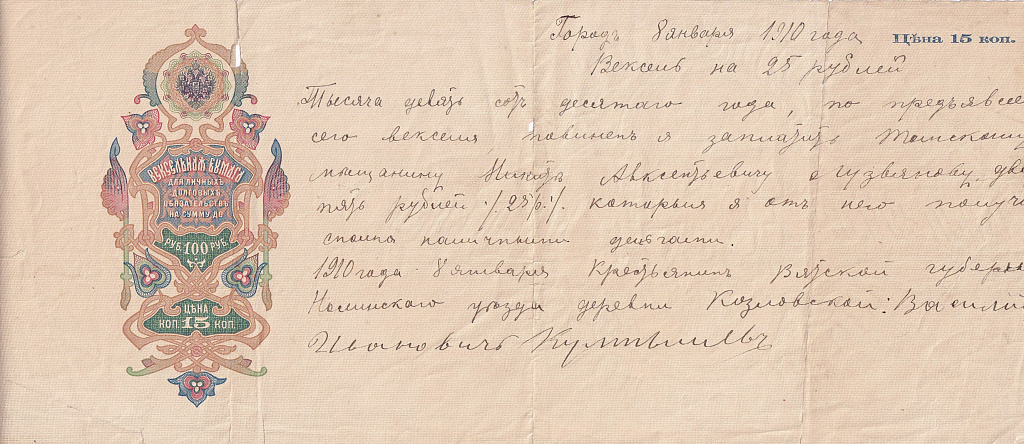 ВЕКСЕЛЬНАЯ БУМАГА
ДЛЯ ЛИЧНЫХЪ
ДОЛГОВЫХЪ
ОБЯЗАТЕЛЬСТВЪ
НА СУММУ ДО
РУБ. 100 РУБ.
ЦѢНА
КОП. 15 КОП.
Городъ 8 января 1910 года
Цѣна 15 коп.
Вексель на 25 рублей
Тысяча девять сотъ десятаго года, по предъявле
сего векселя, повиненъ я заплатить Томскому
мѣщанину Никитѣ Авксентьевичу два
пять рублей ./. 25 р. ./. которыя я отъ него получи
сполна наличными деньгами.
1910 года 8 января Крестьянинъ Вятской губерн
Нолинскаго уѣзда деревни Козловской: Василій
Ивановичъ